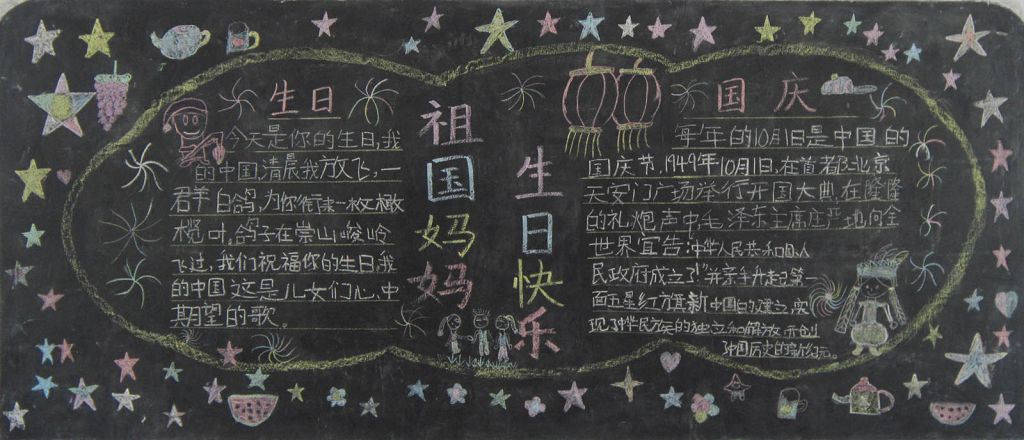 生日
今天是你的生日,我
的中国清晨我放飞,一
群白鸽,为你衔来一枚橄
榄叶,鸽子在崇山峻岭
飞过,我们祝福你的生日我
的中国这是儿女们心中
期望的歌。
祖国妈妈
生日快乐
国庆
每年的10月1日是中国的
国庆节,1949年10月1日,在首都北京
天安门广场举行开国大典,在隆隆
的礼炮声中,毛泽东主席庄严地向全
世界宣告中华人民共和国人
民政府成立了!并亲手升起第一
面五星红旗新中国的建立,实
现了中华民族的独立和解放开创
中国历史的新纪元。